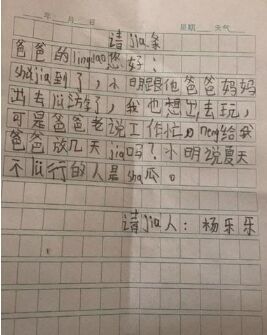 年 月 日 星期 天气
请jia条
爸爸的lingdao您好：
shǔjia到了，小明跟他爸爸妈妈
出去lǔ游了，我也想出去玩，
可是爸爸老说工作忙。neng给我
爸爸放几天jia吗？小明说夏天
不lǚ行的人是sha瓜。
请jia人：杨乐乐